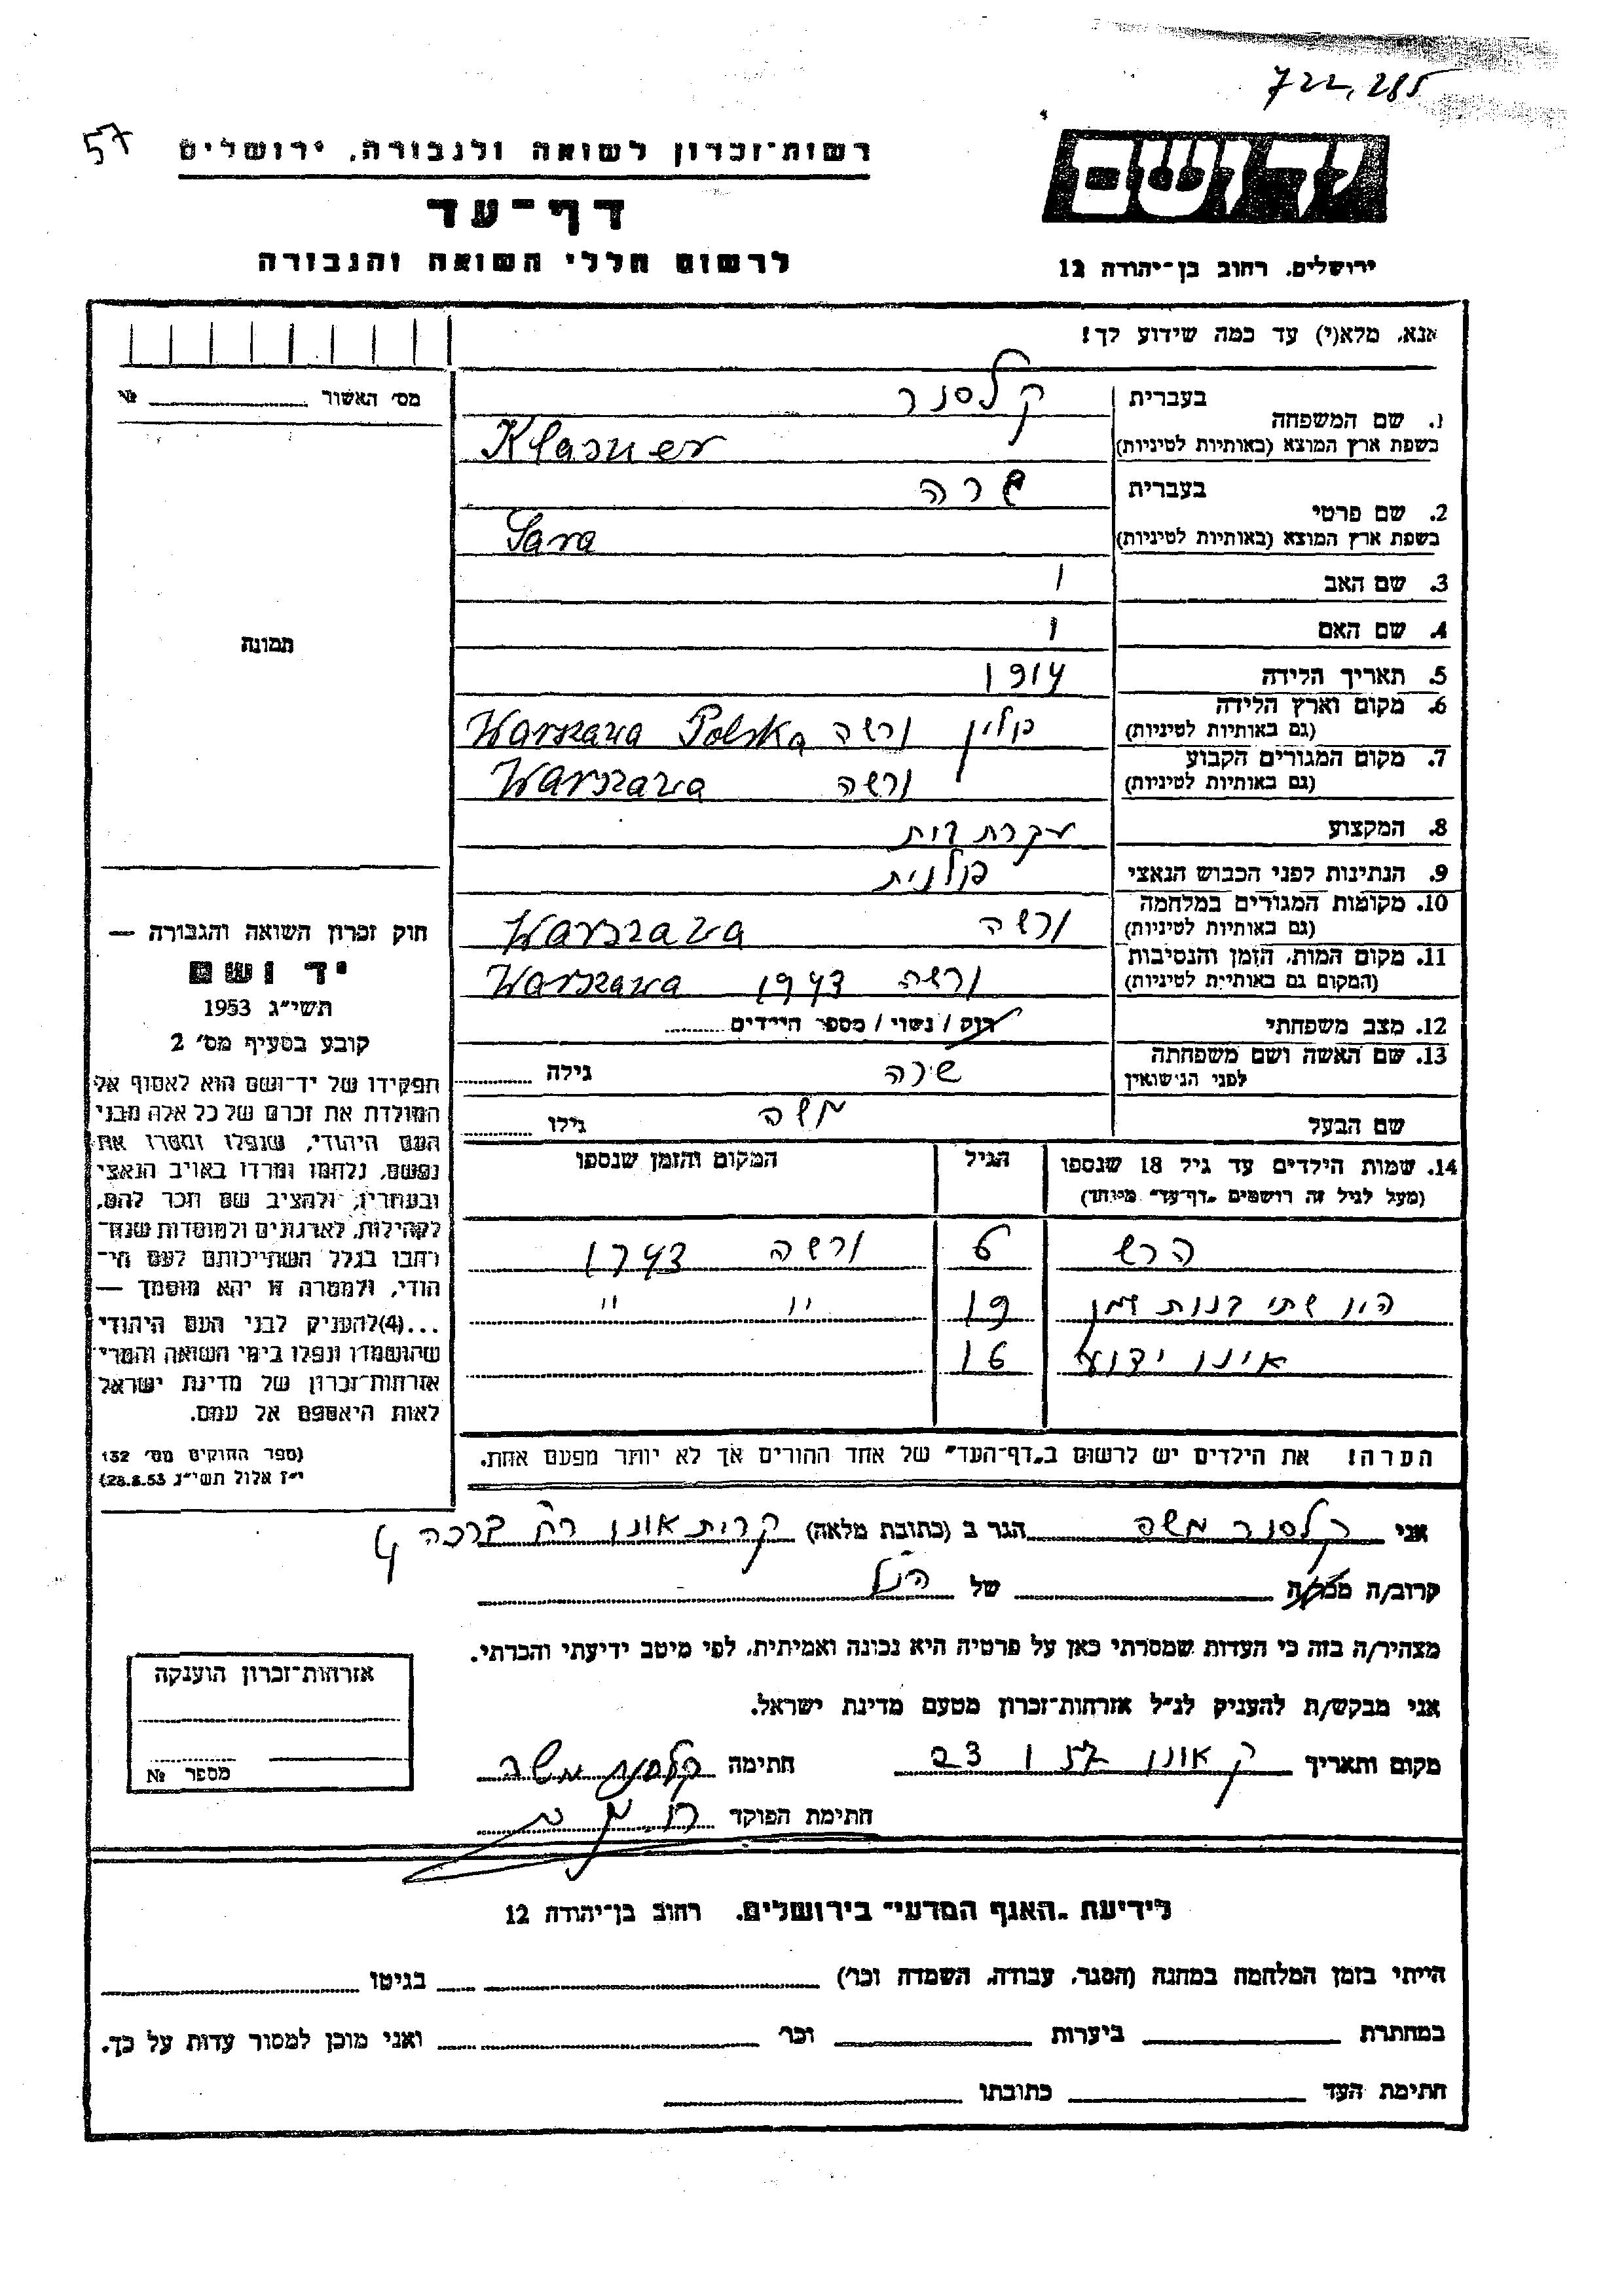 722,285
57
רשות־זכרון לשואה ולגבורה, ירושלים
יד ושם
דף־עד
לרשום חללי השואה והגבורה
ירושלים, רחוב בן־יהודה 12
אנא, מלא(י) עד כמה שידוע לך!
מס׳ האשור № 
בעברית קלסנר
1. שם המשפחה
בשפת ארץ המוצא (באותיות לטיניות) Klasner
בעברית שרה
2. שם פרטי
בשפת ארץ המוצא (באותיות לטיניות) Sara
3. שם האב
4. שם האם
תמונה
5. תאריך הלידה 1914
6. מקום וארץ הלידה
(גם באותיות לטיניות) פולין ורשה Warszawa Polska
7. מקום המגורים הקבוע
(גם באותיות לטיניות) ורשה Warszawa
8. המקצוע עקרת בית
9. הנתינות לפני הכבוש הנאצי פולנית
10. מקומות המגורים במלחמה
(גם באותיות לטיניות) ורשה Warszawa
11. מקום המות, הזמן והנסיבות
(המקום גם באותיות לטיניות) ורשה 1943 Warszawa
12. מצב משפחתי רווק / נשוי / מספר הילדים
13. שם האשה ושם משפחתה
לפני הנישואין שרה גילה
שם הבעל משה גילו
14. שמות הילדים עד גיל 18 שנספו הגיל המקום והזמן שנספו
(מעל לגיל זה רושמים „דף־עד״ מיוחד)
הרש 6 ורשה 1943
היו שתי בנות שמן 19 " "
אינו ידוע 16
הערה! את הילדים יש לרשום ב„דף־העד״ של אחד ההורים אך לא יותר מפעם אחת.
חוק זכרון השואה והגבורה —
יד ושם
תשי״ג 1953
קובע בסעיף מס׳ 2
תפקידו של יד־ושם הוא לאסוף אל
המולדת את זכרם של כל אלה מבני
העם היהודי, שנפלו ומסרו את
נפשם, נלחמו ומרדו באויב הנאצי
ובעוזריו, ולהציב שם וזכר להם,
לקהילות, לארגונים ולמוסדות שנח־
רבו בגלל השתייכותם לעם הי־
הודי, ולמטרה זו יהא מוסמך —
...(4)להעניק לבני העם היהודי
שהושמדו ונפלו בימי השואה והמרי־
אזרחות־זכרון של מדינת ישראל
לאות היאספם אל עמם.
(ספר החוקים מס׳ 132
י״ז אלול תשי״ג 28.8.53)
אני קלסנר משה הגר ב (כתובת מלאה) קרית אונו רח׳ ברכה 4
קרוב/ה מכר/ה של הנ״ל
מצהיר/ה בזה כי העדות שמסרתי כאן על פרטיה היא נכונה ואמיתית, לפי מיטב ידיעתי והכרתי.
אני מבקש/ת להעניק לנ״ל אזרחות־זכרון מטעם מדינת ישראל.
מקום ותאריך ק אונו חתימה קלסנר משה
חתימת הפוקד
אזרחות־זכרון הוענקה
מספר №
לידיעת „האגף המדעי״ בירושלים, רחוב בן־יהודה 12
הייתי בזמן המלחמה במחנה (הסגר, עבודה, השמדה וכו׳) בגיטו
במחתרת ביערות וכו׳ ואני מוכן למסור עדות על כך.
חתימת העד כתובתו